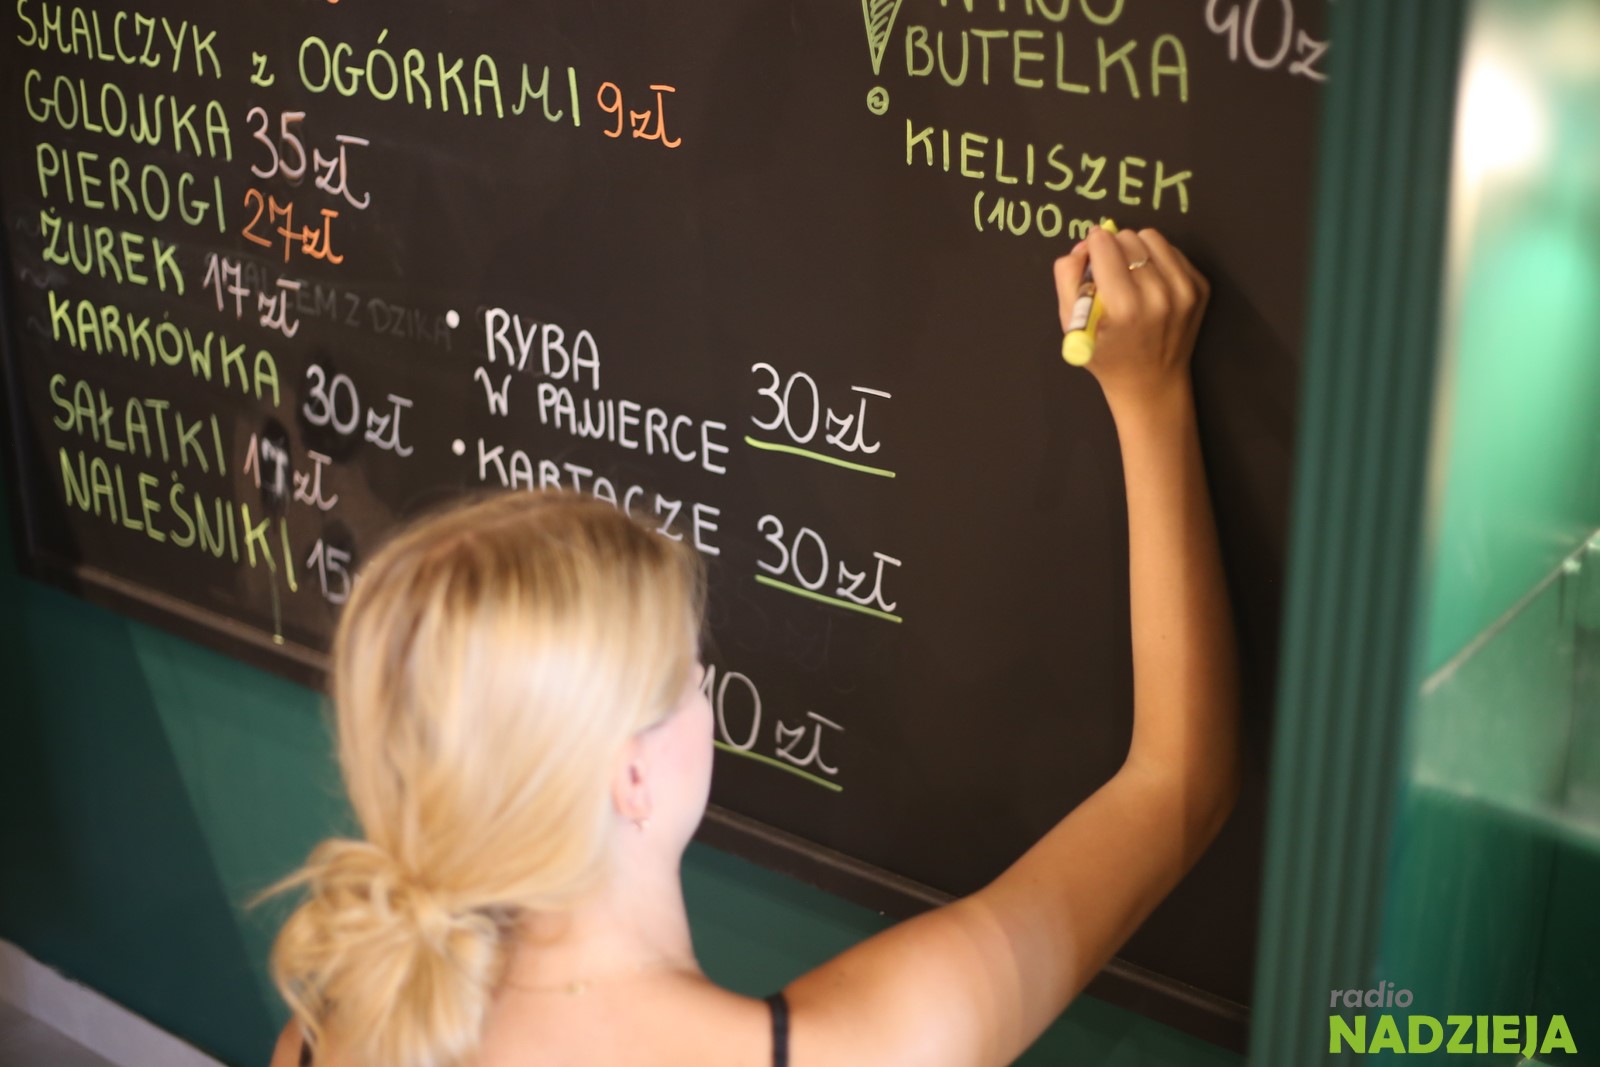 SMALCZYK z OGÓRKAMI 9zł
GOLONKA 35zł
PIEROGI 27zł
ŻUREK 17zł
KARKÓWKA 30zł
SAŁATKI 17zł
NALEŚNIKI 15
• RYBA
W PANIERCE 30zł
• KARTACZE 30zł
10 zł
BUTELKA
KIELISZEK
(100m
Z DZIKA
radio
NADZIEJA